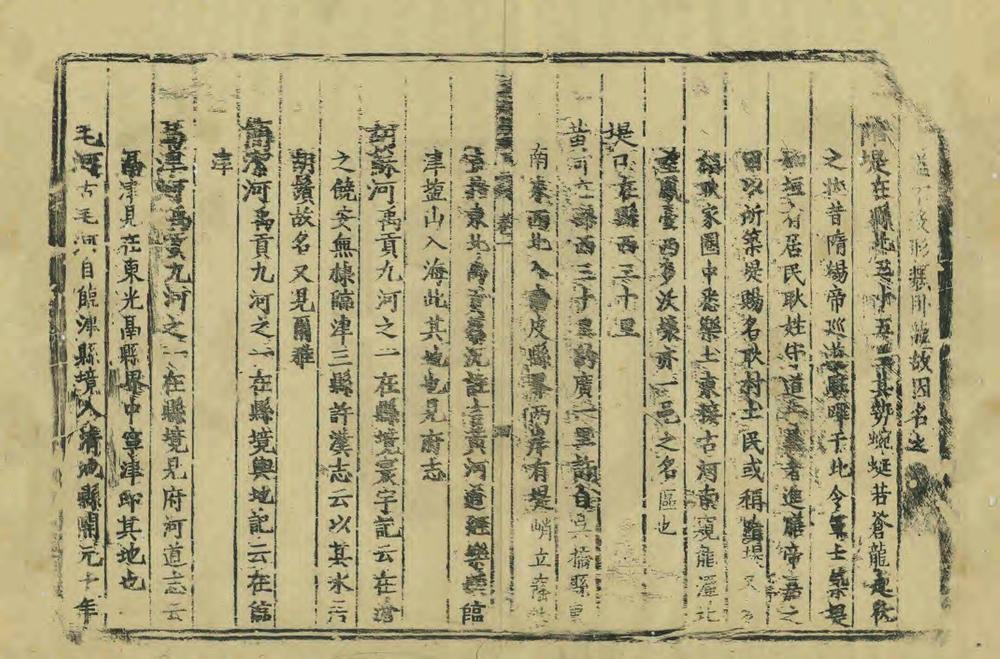 形類臥龍故因名之
隋堤在縣北五十五里其勢蜿蜒若蒼龍
之狀昔隋煬帝巡遊駐蹕于此令軍士築堤
有居民耿姓守道者進膳帝嘉之
因以所築堤賜名耿村士民或稱隋堤又
耿家圈中悉樂土東接古河南窺龍北
望鳳臺西多沃壤亦一邑之名區也
堤口在縣西三十里
黃河在縣西三十里約廣一里自吳橋縣
南來西北入皮縣界兩岸有堤峭立
東北禹貢蔡沉註言黃河道經樂陵臨
津塩山入海此其地也見府志
胡蘇河禹貢九河之一在縣境寰宇記云在滄
之饒安無棣臨津三縣許漢志云以其水
胡蘇故名又見爾雅
簡潔河禹貢九河之一在縣境輿地記云在臨
津
鬲津河禹貢九河之一在縣境見府河道志云
鬲津見在東光鬲縣界中寧津即其地也
毛河古毛河自饒津縣境入清池縣開元十年
卷一